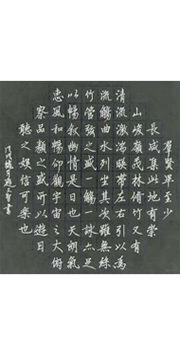 群賢畢至少
長咸集此地有崇
山峻嶺茂林修竹又有
清流激湍映帶左右引以為
流觴曲水列坐其次雖無絲
竹管弦之盛一觴一詠亦足
以暢敘幽情是日也天朗氣
惠風和暢仰觀宇宙之大俯
察品類之盛所以遊目
聽之娛信可樂也